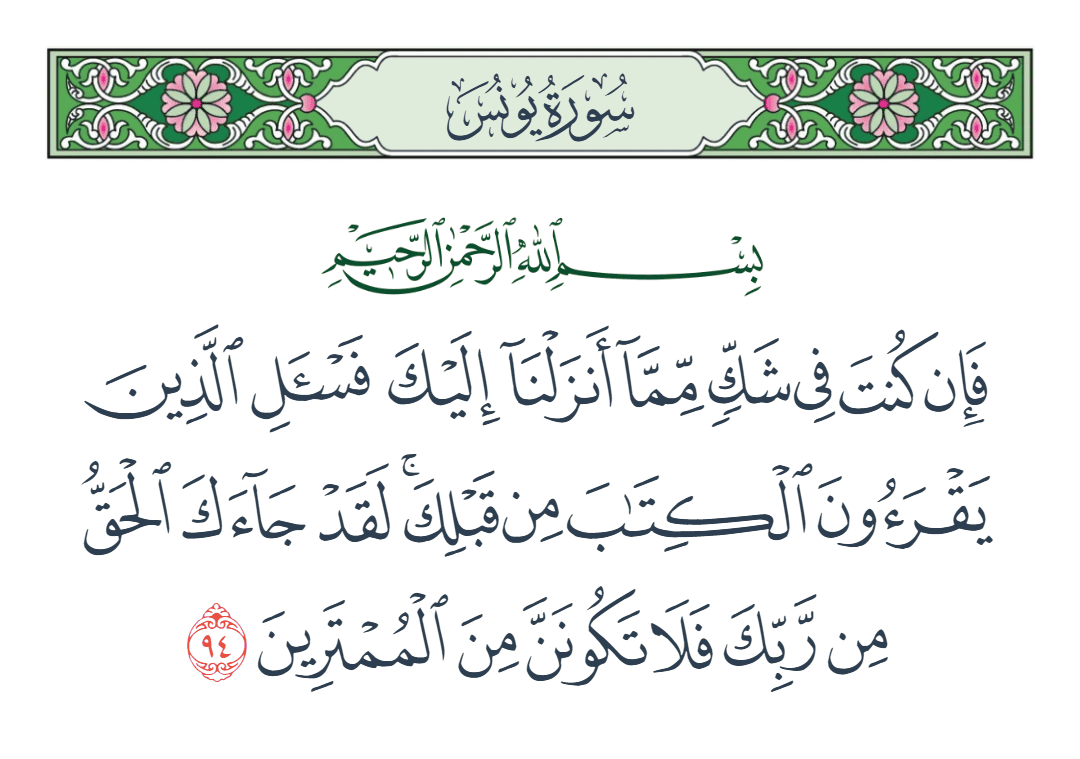 سُورَةُ يُونُسَ
بِسْمِ ٱللَّهِ ٱلرَّحْمَٰنِ ٱلرَّحِيمِ
فَإِن كُنتَ فِى شَكٍّ مِّمَّآ أَنزَلْنَآ إِلَيْكَ فَسْـَٔلِ ٱلَّذِينَ
يَقْرَءُونَ ٱلْكِتَٰبَ مِن قَبْلِكَ ۚ لَقَدْ جَآءَكَ ٱلْحَقُّ
مِن رَّبِّكَ فَلَا تَكُونَنَّ مِنَ ٱلْمُمْتَرِينَ ٩٤